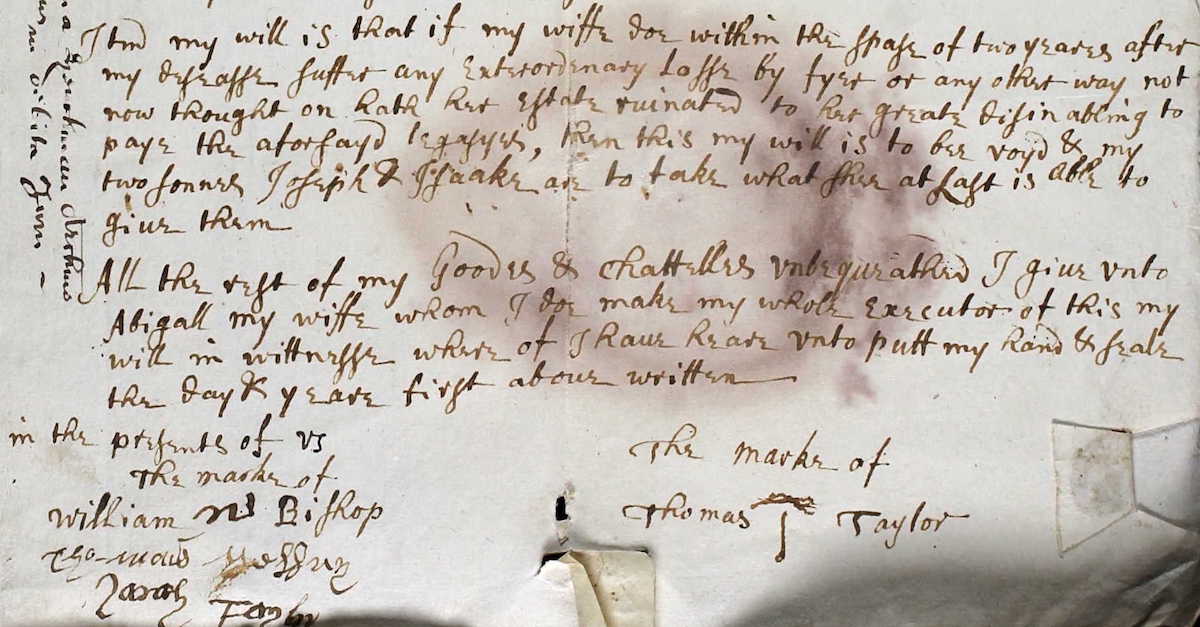 Itm my will is that if my wiffe doe within the spase of two yeares after
my deseasse suffer any Extreordenary Losse by fyer or any other way not
now thought on hath her Estate ruinated to her greate disinabling to
paye the aforsayd legasyes, then this my will is to bee voyd & my
two sonnes Joseph & Jsaake are to take what shee at Last is able to
giue them
All the rest of my Goodes & Chattelles vnbequeathed I giue vnto
Abigall my wiffe whom I doe make my whole Executor of this my
will in wittnesse where of I haue heare vnto putt my hand & seale
the day & yeare first aboue written
in the presents of vs
The marke of
William Bishop
Sarah
The marke of
Thomas T Taylor